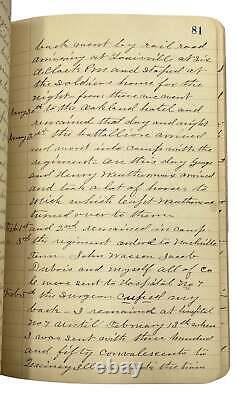 81
back went by rail road
arriving at Louisville at Six
oClock Pm and stoped at
the Soldiers home for the
night from there we went
to the Oakland hotel and
remained that day and night
the battallion arrived
and went into camp with the
regiment on this day George
and Henry arrived
and took a lot of horses to
which
turned over to them
Feb 1st and 2nd remained in camp
3rd the regiment ordered to Nashville
Tenn John Wasson Jacob
Dubois and myself all of Co
were sent to Hospital No 7
the Surgeon my
back I remained at hospital
No 7 until February 13th when
I was sent with three hundred
and fifty Convalescents to
Quincy Ill the time
ebay